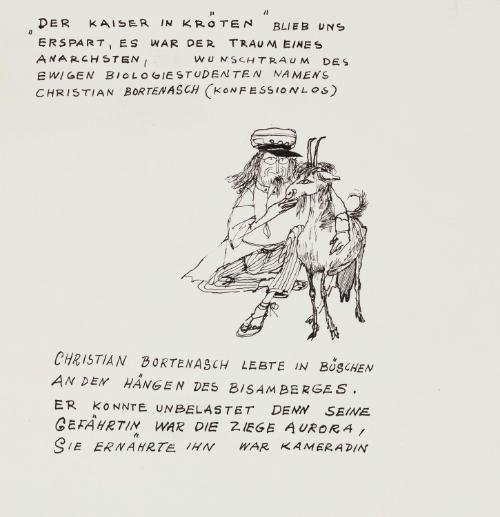 „DER KAISER IN KRÖTEN" BLIEB UNS
ERSPART, ES WAR DER TRAUM EINES
ANARCHSTEN, WUNSCHTRAUM DES
EWIGEN BIOLOGIESTUDENTEN NAMENS
CHRISTIAN BORTENASCH (KONFESSIONLOS)
CHRISTIAN BORTENASCH LEBTE IN BÜSCHEN
AN DEN HÄNGEN DES BISAMBERGES.
ER KONNTE UNBELASTET DENN SEINE
GEFÄHRTIN WAR DIE ZIEGE AURORA,
SIE ERNÄHRTE IHN WAR KAMERADIN